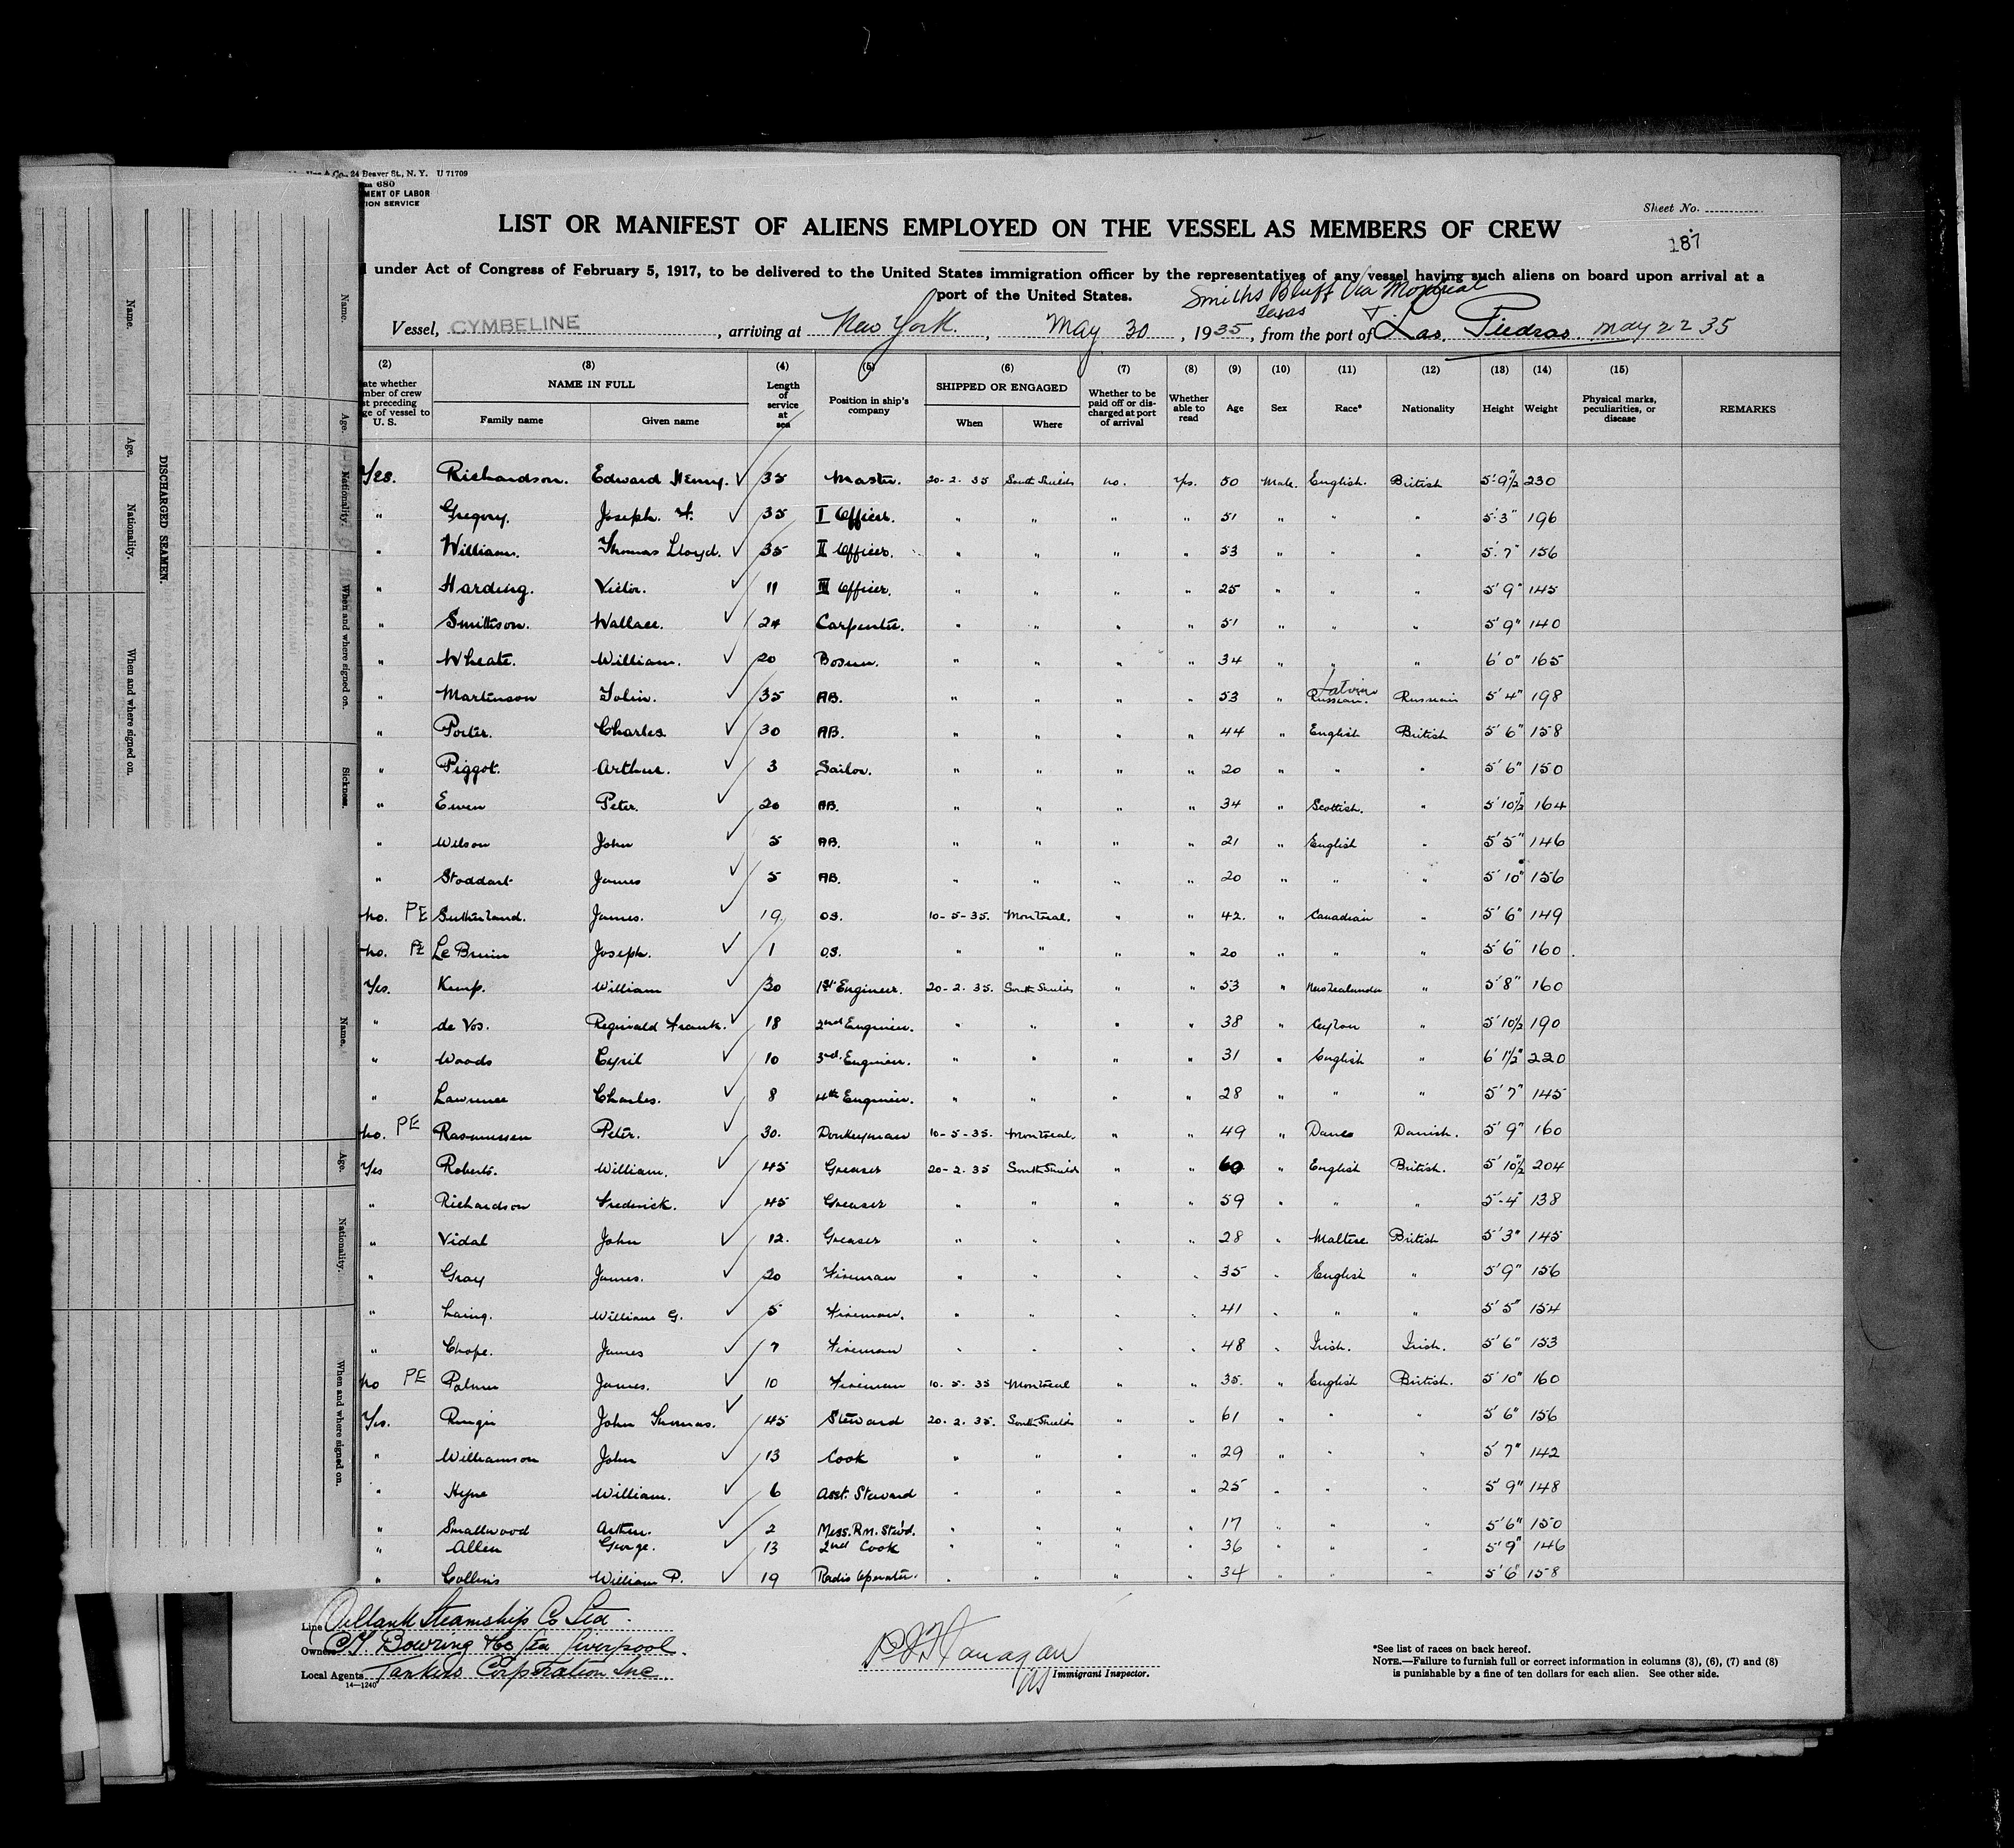 24 Beaver St., N. Y. U 71709
680
MENT OF LABOR
ION SERVICE
Sheet No.
187
LIST OR MANIFEST OF ALIENS EMPLOYED ON THE VESSEL AS MEMBERS OF CREW
under Act of Congress of February 5, 1917, to be delivered to the United States immigration officer by the representatives of any vessel having such aliens on board upon arrival at a
port of the United States.
Smiths Bluff Via Montreal
Texas
Vessel, CYMBELINE, arriving at New York., May 30, 1935, from the port of Las. Piedras. May 22 35
(2) (3) (4) (5) (6) (7) (8) (9) (10) (11) (12) (13) (14) (15)
ate whether mber of crew st preceding ge of vessel to U. S. NAME IN FULL Family name Given name Length of service at sea Position in ship's company SHIPPED OR ENGAGED When Where Whether to be paid off or discharged at port of arrival Whether able to read Age Sex Race* Nationality Height Weight Physical marks, peculiarities, or disease REMARKS
Yes. Richardson. Edward Henry. 35 Master. 20-2. 35 South Shields no. Yes. 50 Male. English. British 5'-9½" 230
" Gregory. Joseph. 35 I Officer. " " " " 51 " " " 5'3" 196
" Williams. Thomas Lloyd. 35 II Officer. " " " " 53 " " " 5'7" 156
" Harding. Victor. 11 III Officer. " " " " 25 " " " 5'9" 145
" Smithson. Wallace. 24 Carpenter. " " " " 51 " " " 5'9" 140
" Wheate. William. 20 Bosun. " " " " 34 " " " 6'0" 165
" Martinson John. 35 AB. " " " " 53 " Latvian Russian. Russian 5'4" 198
" Porter. Charles 30 AB. " " " " 44 " English British 5'6" 158
" Piggot. Arthur. 3 Sailor. " " " " 20 " " " 5'6" 150
" Ewen Peter. 20 AB. " " " " 34 " Scottish. " 5'10½" 164
" Wilson John 5 AB. " " " " 21 " English " 5'5" 146
" Stoddart James 5 AB. " " " " 20 " " " 5'10" 156
no. PE Sutherland. James. 19. OS. 10-5-35. Montreal. " " 42. " Canadian " 5'6" 149
no. PE Le Bruin Joseph. 1 O.S. " " " " 20 " " " 5'6" 160
Yes. Kemp. William 30 1st Engineer. 20-2. 35. South Shields " " 53 " New Zealander " 5'8" 160
" de Vos. Reginald Frank. 18 2nd Engineer. " " " " 38 " Ceylon " 5'10½ 190
" Woods Cyril 10 3rd Engineer. " " " " 31 " English " 6'1½" 220
" Lawrence Charles. 8 4th Engineer. " " " " 28 " " " 5'7" 145
no. PE Rasmussen Peter. 30. Donkeyman 10-5-35. Montreal. " " 49 " Danes Danish. 5'9" 160
Yes Roberts. William. 45 Greaser 20-2. 35 South Shields " " 60 " English British. 5'10½" 204
" Richardson Frederick. 45 Greaser " " " " 59 " " " 5'-4" 138
" Vidal John 12. Greaser " " " " 28 " Maltese. British 5'3" 145
" Gray James. 20 Fireman " " " " 35 " English " 5'9" 156
" Laing. William G. 5 Fireman. " " " " 41 " " " 5'5" 154
" Chope. James 7 Fireman " " " " 48 " Irish. Irish. 5'6" 153
no PE Palmer James. 10 Fireman 10. 5. 35 Montreal " " 35. " English British. 5'10" 160
Yes. John Thomas. 45 Steward 20. 2. 35. South Shields " " 61 " " " 5'6" 156
" Williamson John 13 Cook " " " " 29 " " " 5'7" 142
" Hyne William. 6 Asst. Steward " " " " 25 " " " 5'9" 148
" Smallwood Arthur. 2 Mess. Rm. Stew'd. " " " " 17 " " " 5'6" 150
" Allen George. 13 2nd Cook " " " " 36 " " " 5'9" 146
" Collins William P. 19 Radio Operator. " " " " 34 " " " 5'6" 158
Line Oiltank Steamship Co Ltd.
Owners C.T. Bowring & Co Ltd Liverpool.
Local Agents Tankers Corporation Inc.
14—1240
Flanagan
Immigrant Inspector.
*See list of races on back hereof.
NOTE.—Failure to furnish full or correct information in columns (3), (6), (7) and (8)
is punishable by a fine of ten dollars for each alien. See other side.
DISCHARGED SEAMEN.
Name.
Age.
Nationality.
When and where signed on.
Name.
Age.
Nationality.
When and where signed on.
Sickness.
Name.
Age.
Nationality.
When and where signed on.